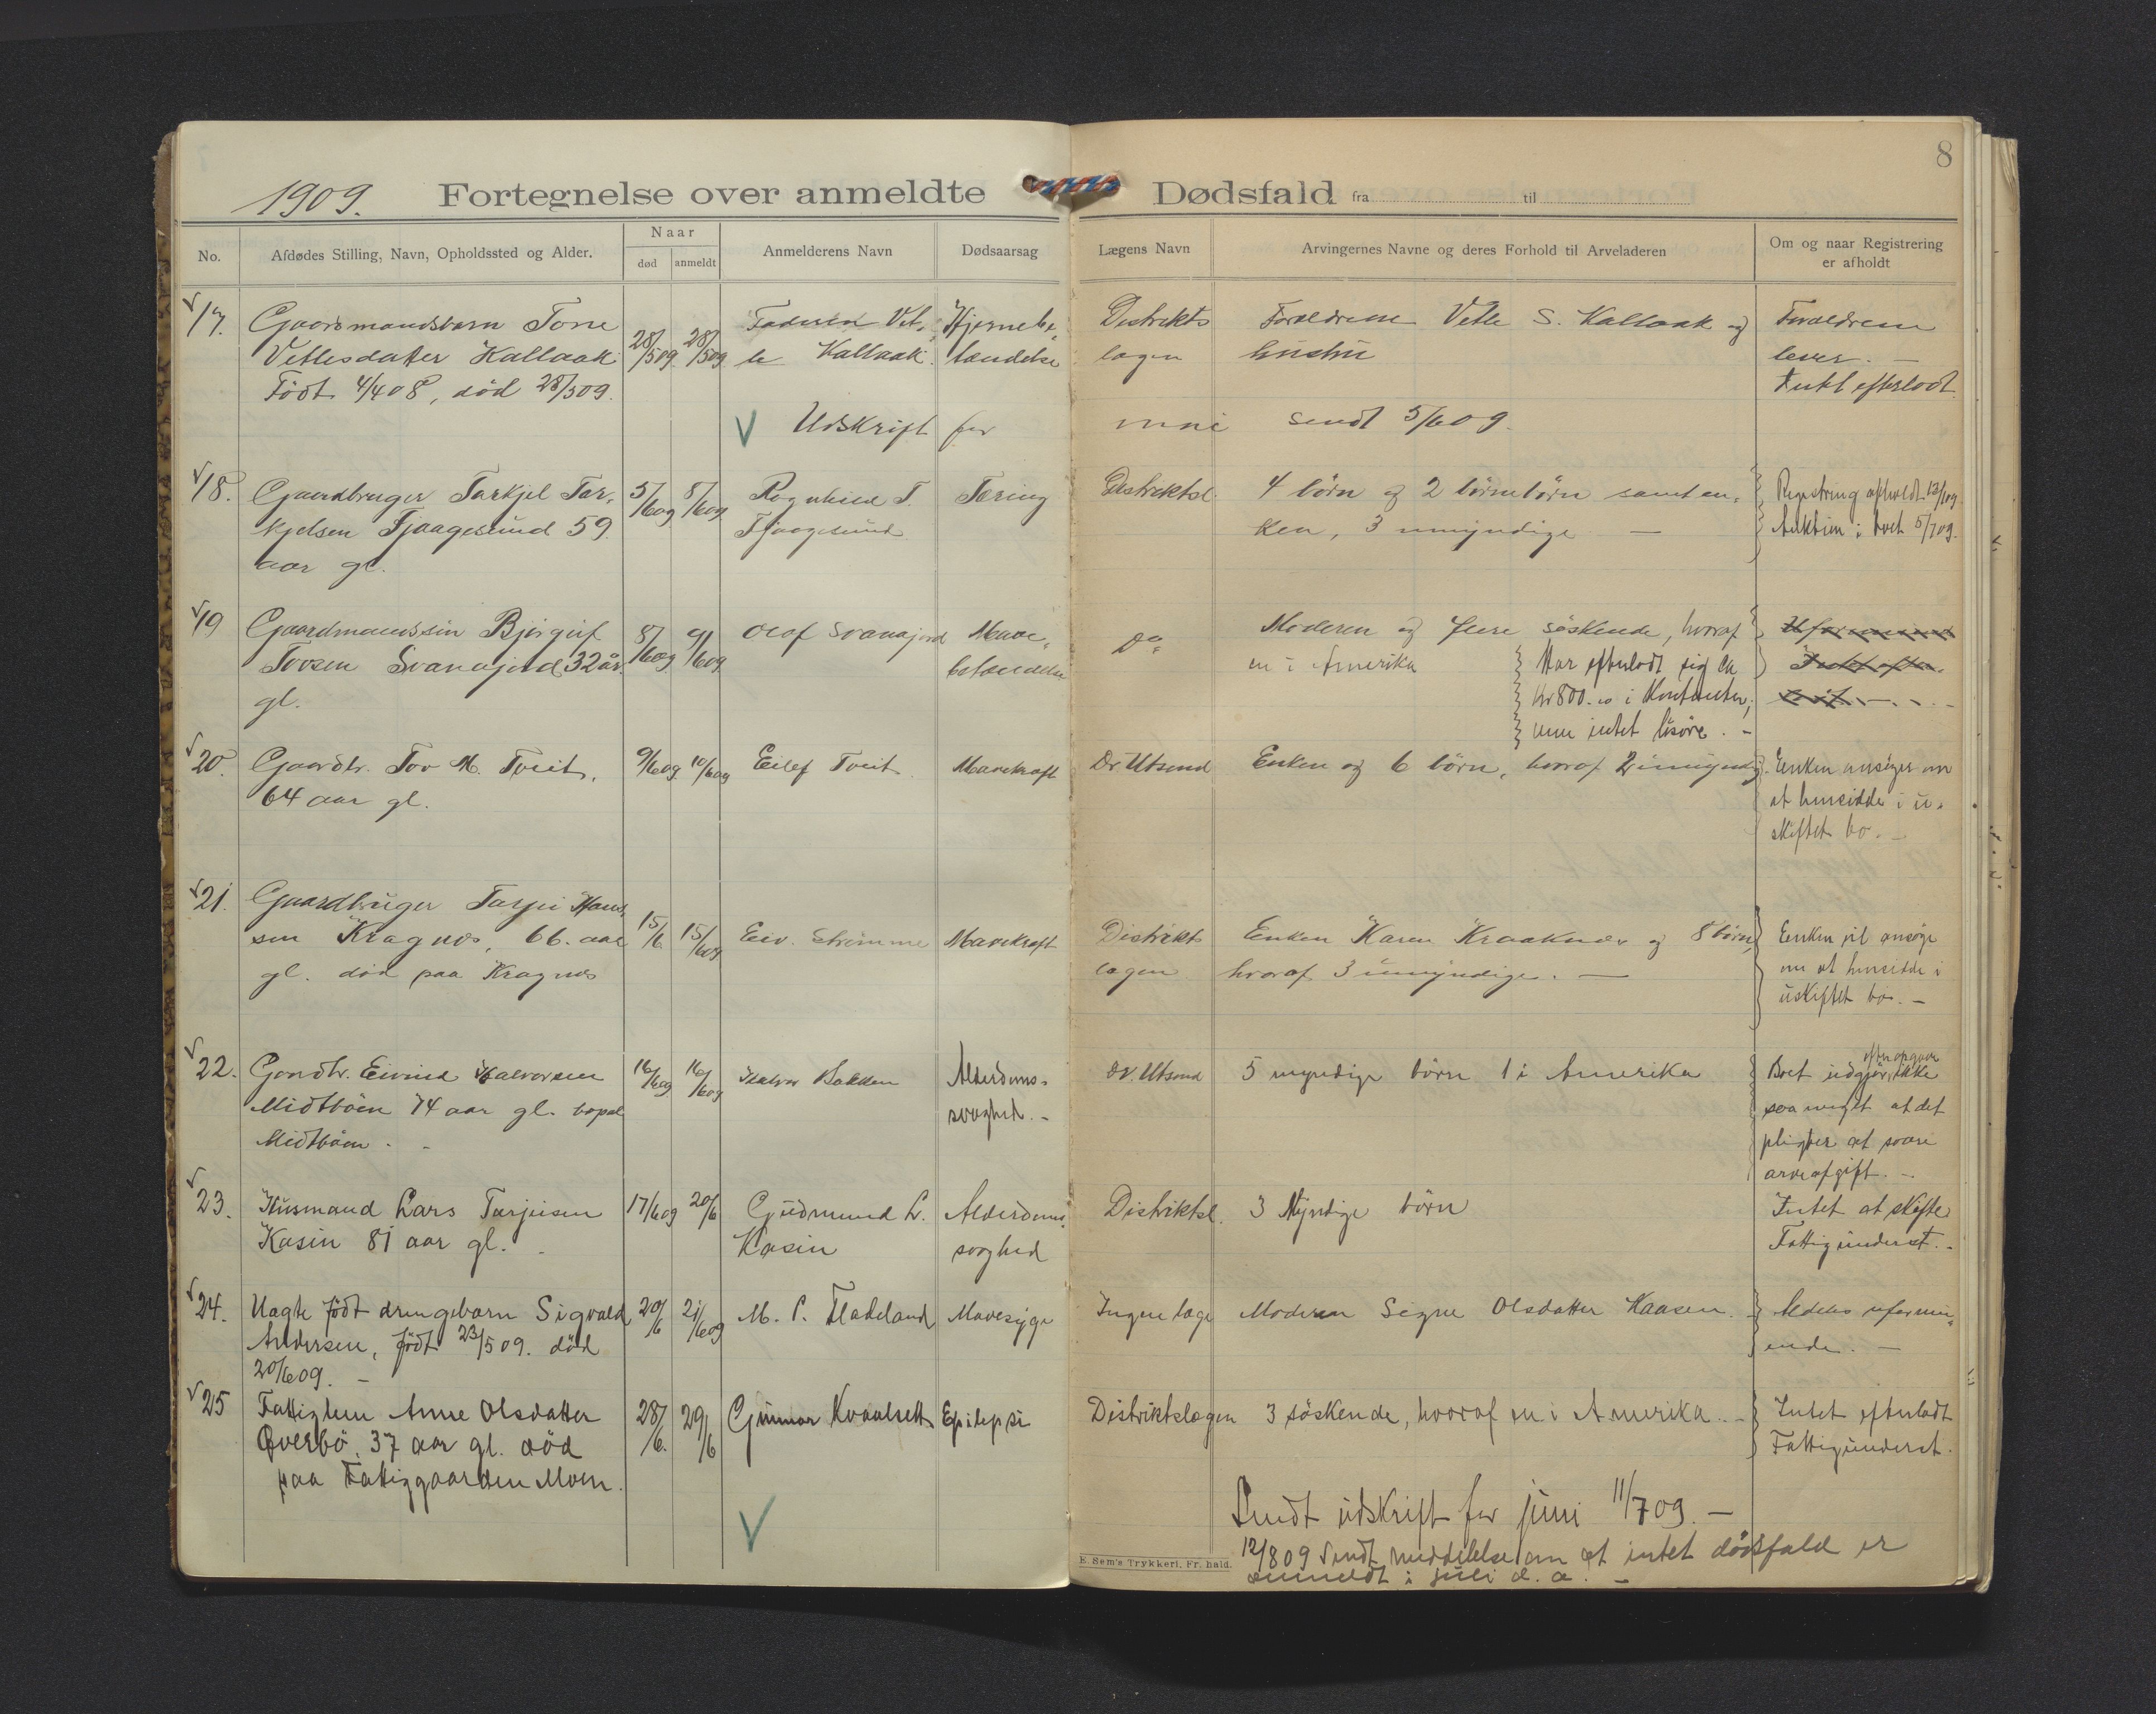 8
1909. Fortegnelse over anmeldte Dødsfald fra til
No.
Afdødes Stilling, Navn, Opholdssted og Alder.
Naar
død
anmeldt
Anmelderens Navn
Dødsaarsag
Lægens Navn
Arvingernes Navne og deres Forhold til Arveladeren
Om og naar Registrering
er afholdt
17.
Gaardmandsbarn Tone
Vetlesdatter Kallaak
Født 4/4 08, død 28/5 09.
28/5 09.
28/5 09
Faderen Vet-
le Kallaak.
Hjernebe-
tændelse
Distrikts
lægen
Forældrene Vetle S. Kallaak og
hustru
Forældrene
lever. —
Intet efterladt
V Udskrift for mai sendt 5/6 09.
18.
Gaardbruger Tarkjel Tar-
kjelsen Fjaagesund 59
aar gl.
5/6 09
8/6 09
Ragnhild T.
Fjaagesund
Tæring
Distriktsl.
4 børn og 2 børnebørn samt en-
ken, 3 umyndige —
Registrering afholdt 12/6 09.
Auktion i boet 5/7 09.
19
Gaardmandssøn Bjørgulf
Tovsen Svanajord 32 år
gl.
8/6 09
9/6 09
Olaf Svanajord
Mave-
betændelse
Do
Moderen og flere søskende, hvoraf
en i Amerika
Har efterladt sig ca
kr 800.00 i Kontanter,
men intet løsøre. -
20.
Gaardbr. Tov M. Tveit,
64 aar gl.
9/6 09
10/6 09
Eilef Tveit.
Mavekræft
Dr Utsond
Enken og 6 børn, hvoraf 2 umyndig.
Enken ansøger om
at hensidde i u-
skiftet bo. -
21.
Gaardbruger Tarjei Han-
sen Kragnes, 66. aar
gl. død paa Kragnes
15/6
15/6 09
Eiv. Strømme
Mavekræft
Distrikts
lægen
Enken Karen Kraaknes og 8 børn,
hvoraf 3 umyndige. —
Enken vil ansøge
om at hensidde i
uskiftet bo. -
22.
Gardbr. Eivind Halvorsen
Midtbøen 74 aar gl. bopæl
Midtbøen. -
16/6 09
16/6 09
Halvor Bakken
Alderdoms-
svaghed. -
Dr. Utsond
5 myndige børn 1 i Amerika
efter opgave
Boet udgjør, ikke
saa meget at det
pligter at svare
arveafgift. -
23.
Husmand Lars Tarjeisen
Kasin 81 aar gl. -
17/6 09
20/6
Gudmund L.
Kasin
Alderdoms-
svaghed
Distriktsl.
3 Myndige børn
Intet at skifte
Fattigunderst. -
24.
Uægte født drengebarn Sigvald
Andersen, født 23/5 09. død
20/6 09. -
20/6
21/6 09
M. P. Fladeland
Mavesyge
Ingen læge
Moderen Signe Olsdatter Haasen. -
Aldeles uformu-
ende. -
25
Fattiglem Anne Olsdatter
Øverbø. 37 aar gl. død
paa Fattiggaarden Moen.
28/6.
29/6
Gunnar Kvaalseth
Epilepsi
Distriktslægen
3 søskende, hvoraf en i Amerika. -
Intet efterladt
Fattigunderst.
V
Sendt udskrift for juni 11/7 09. —
12/8 09 Sendt meddelelse om at intet dødsfald er
anmeldt i juli d. a. -
E. Sem's Trykkeri, Fr.hald.